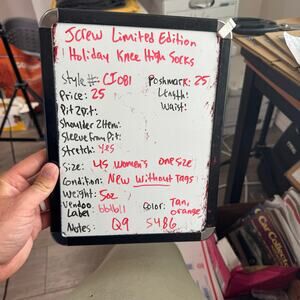 JCrew Limited Edition
Holiday Knee High Socks
Style #: CI081 Poshmark: 25
Price: 25 Length:
Pit 2 Pit: Waist:
Shoulder 2 Hem:
Sleeve From Pit:
Stretch: yes
Size: US Women's one size
Condition: New Without Tags
Weight: 5oz
Vendoo Label: bblb11 Color: Tan, orange
Notes: Q9 5486